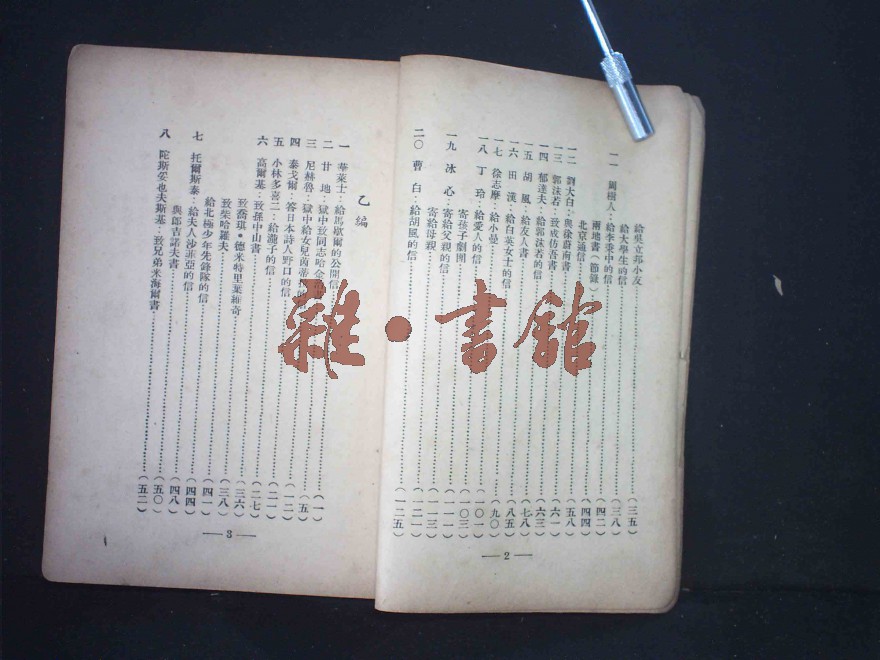 給吳立邦小友……(三五)
給大學生的信……(三八)
一一 周樹人：給李秉中的信……(三八)
兩地書（節錄）……(四二)
北京通信……(四四)
一二 劉大白：與徐蔚南書……(五八)
一三 郭沫若：致成仿吾書……(六一)
一四 郁達夫：給郭沫若的信……(六三)
一五 胡風：給友人書……(七八)
一六 田漢：給白英女士的信……(八五)
一七 徐志摩：給小曼……(九〇)
一八 丁玲：給愛人的信……(一〇一)
寄孩子劇團……(一〇三)
一九 冰心：寄給父親的信……(一一一)
寄給母親……(一一三)
二〇 曹白：給胡風的信……(一二一)
(一二五)
— 2 —
乙編
一 華萊士：給馬歇爾的公開信……(一)
二 甘地：獄中致同志哈金
三 尼赫魯：獄中給女兒茵蒂……(五)
四 泰戈爾：答日本詩人野口的信……(一二)
五 小林多喜二：給瀧子的信……(二一)
六 高爾基：致孫中山書……(二七)
致喬琪·德米特里葉維奇……(三六)
致柴哈羅夫……(三八)
給北極少年先鋒隊的信……(四一)
七 托爾斯泰：給夫人沙菲亞的信……(四四)
與郎吉諾夫書……(四八)
八 陀斯妥也夫斯基：致兄弟米海爾書……(五〇)
(五二)
— 3 —
雜·書館